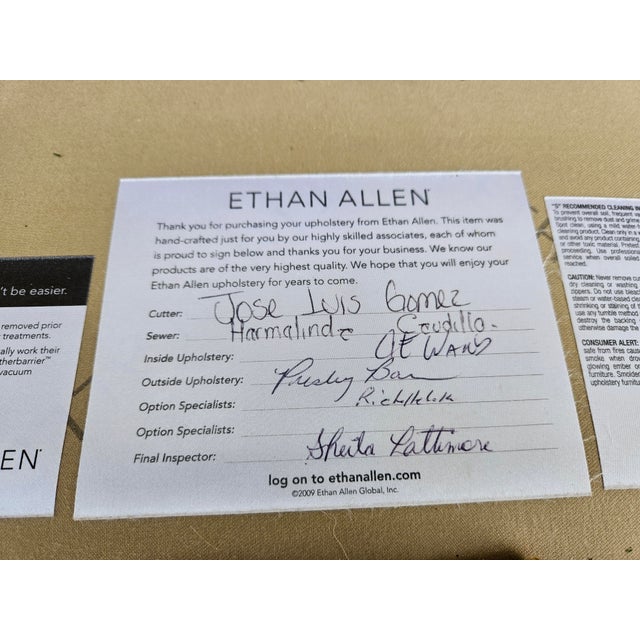 ETHAN ALLEN
Thank you for purchasing your upholstery from Ethan Allen. This item was
hand-crafted just for you by our highly skilled associates, each of whom
is proud to sign below and thanks you for your business. We know our
products are of the very highest quality. We hope that you will enjoy your
Ethan Allen upholstery for years to come.
Cutter: Jose Luis Gomez
Sewer: Harmalinda Caudillo.
Inside Upholstery: JE WARD
Outside Upholstery: Presley
Option Specialists:
Option Specialists:
Final Inspector: Sheila Lattimore
log on to ethanallen.com
©2009 Ethan Allen Global, Inc.
't be easier.
removed prior
treatments.
ally work their
therbarrier™
vacuum
EN
"S" RECOMMENDED CLEANING IN
To prevent overall soil, frequent
brushing to remove dust and grime
Spot clean, using a mild water-
cleaning product. Clean only in a
and avoid any product containing
or other toxic material. Pretest
proceeding. Use professional
service when overall soiled
reached.
CAUTION: Never remove cu
dry cleaning or washing
zippers. Do not use bleach
steam or water-based clean
shrinking or staining of th
use any tumble method
destroy the backing
otherwise damage the
CONSUMER ALERT:
safe from fires cause
smoke when drow
glowing ember or
furniture. Smolder
upholstery furnitur